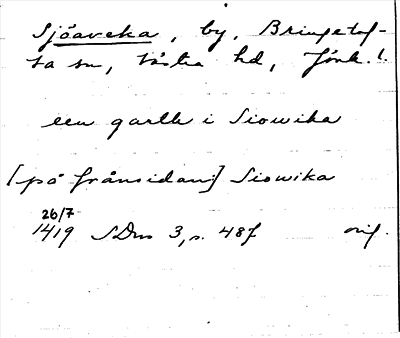 Sjöaveka, by, Bringetof-
ta sn, Västra hd, Jönk. l.
een gardh i Siowika
[på frånsidan:] Siowika
26/7
1419 SDns 3, s. 487 orig.